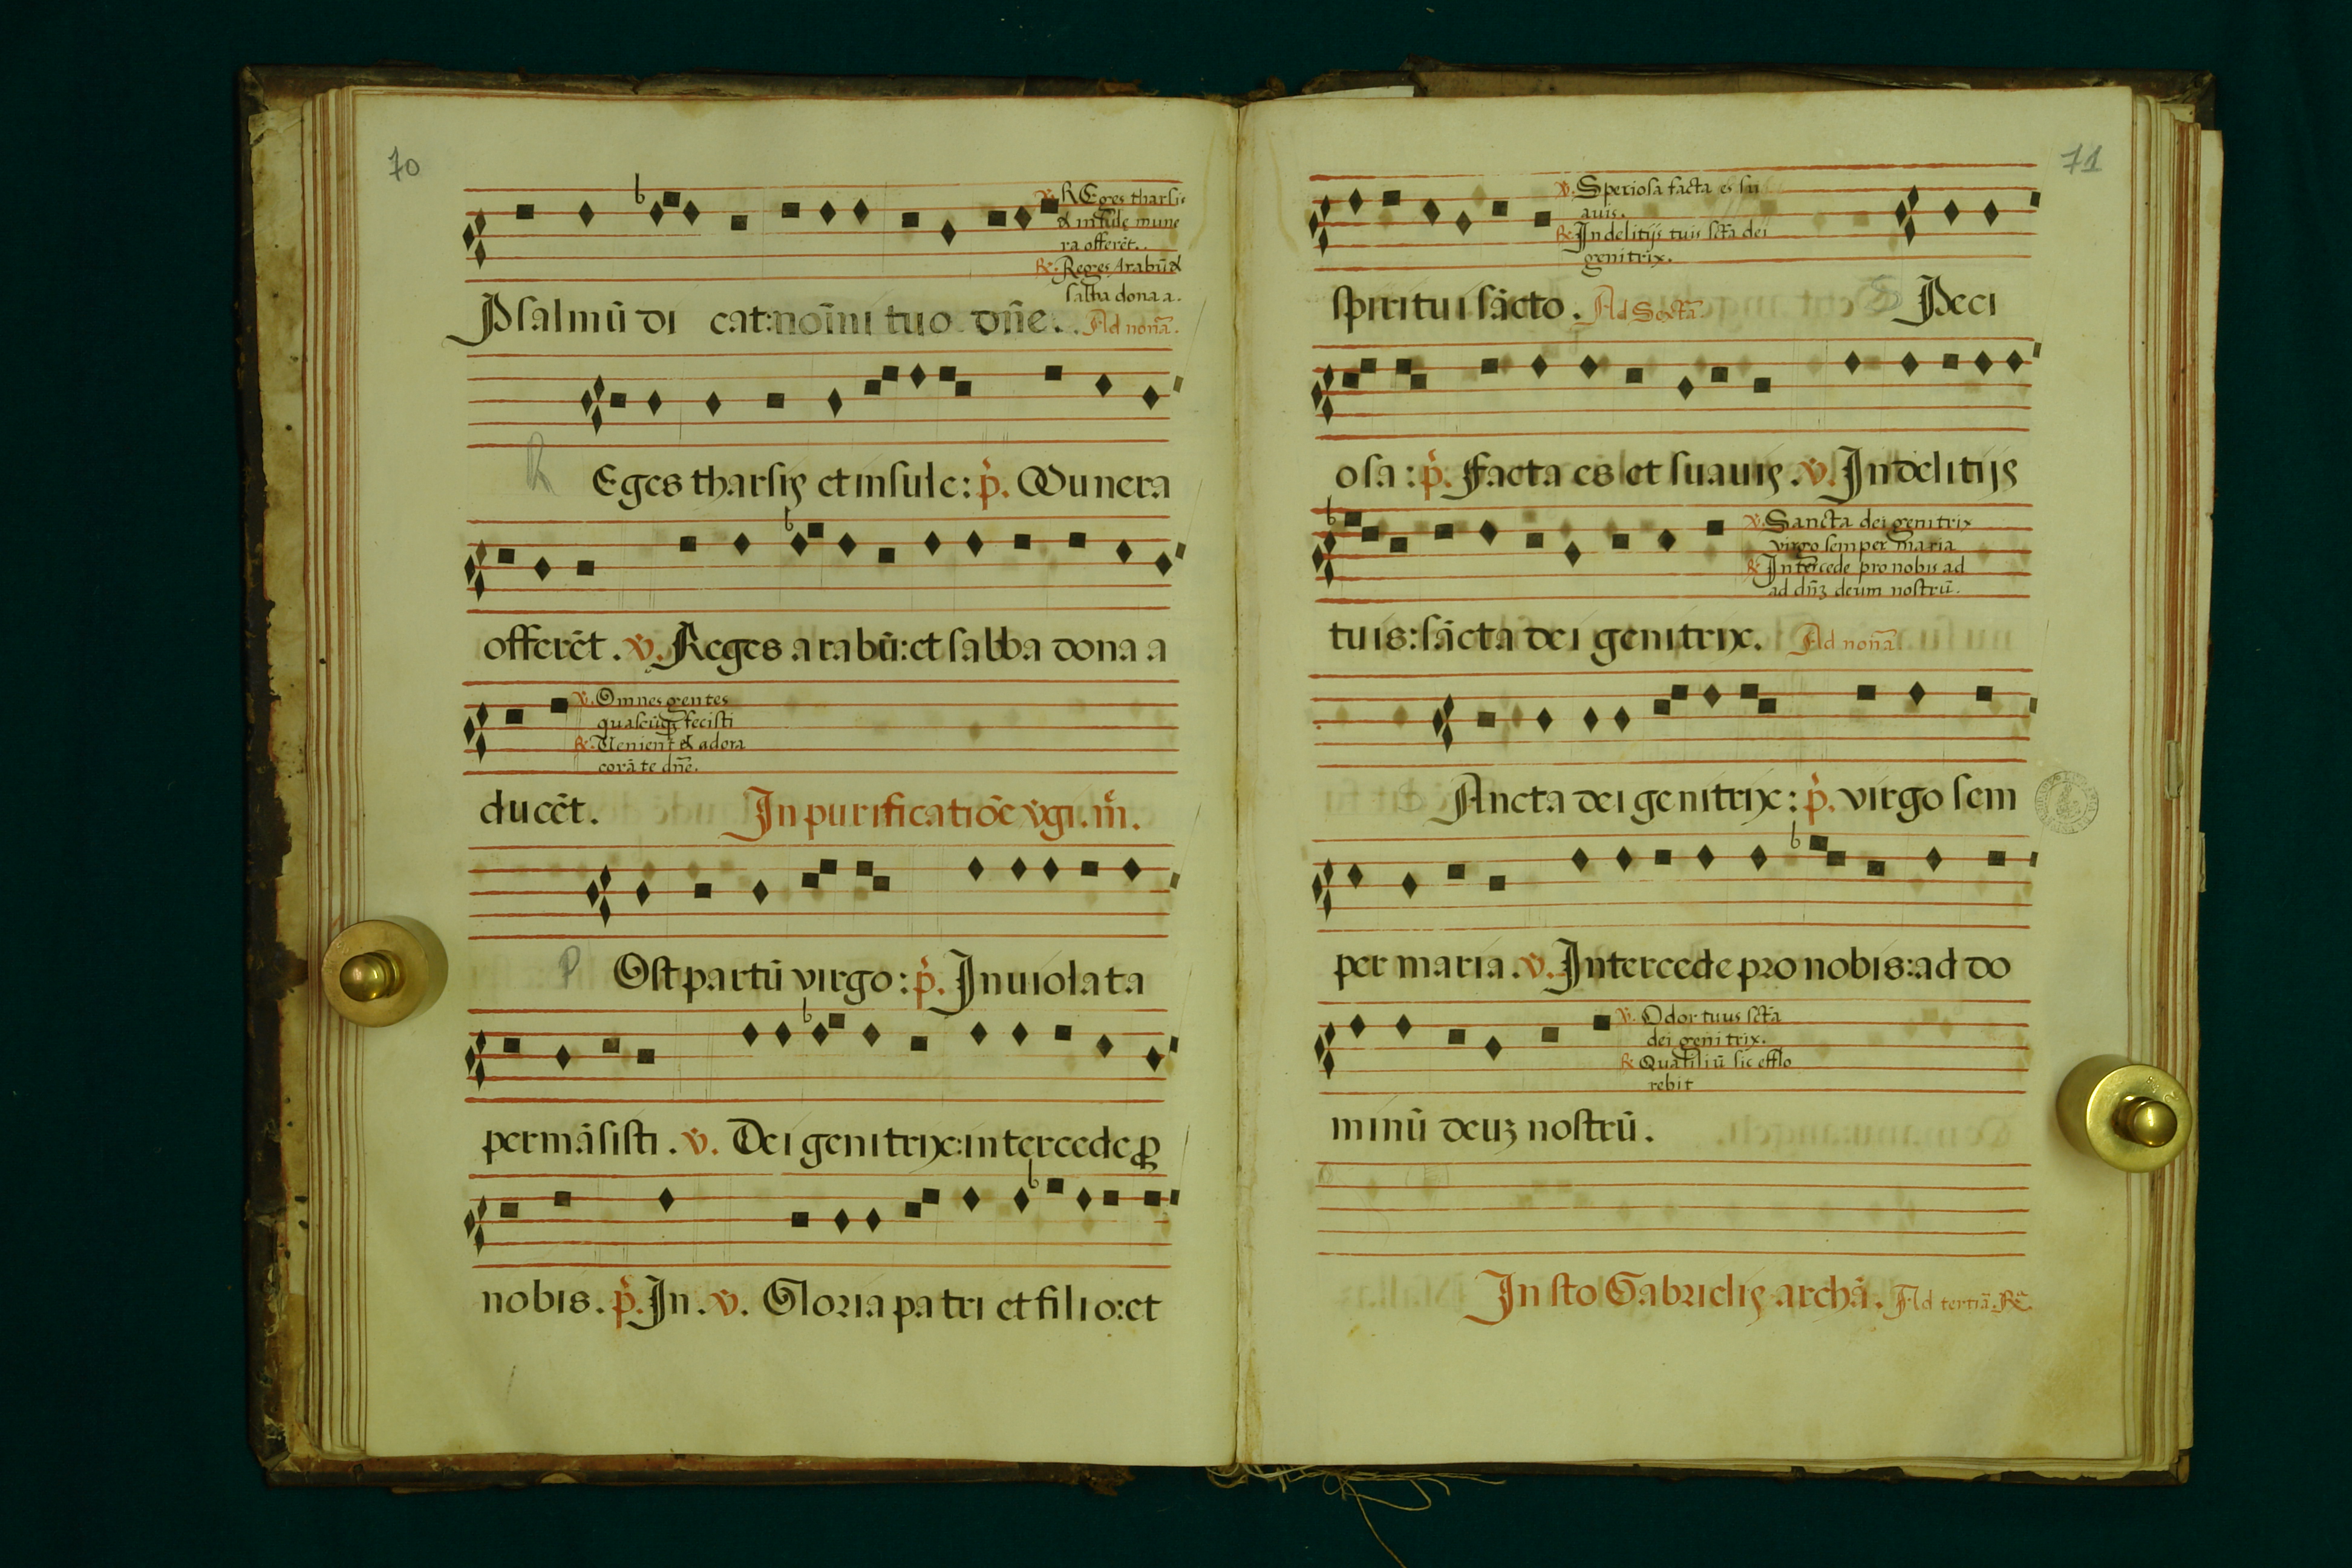 70
℣. REges tharsis
& insulę mune
ra offerēt.
℟. Reges Arabū &
sabba dona a.
Psalmū di cat: noīni tuo dn̄e. Ad nonā.
R Eges tharsis et insule: p̄. Munera
offerēt. ℣. Reges arabū: et sabba dona a
℣. Omnes gentes
quascūqꝫ fecisti
℟. Venient & adora
corā te dn̄e.
ducēt. In purificatiōe v̄gi. m̄.
P Ost partū virgo: p̄. Inuiolata
permāsisti. ℣. Dei genitrix: intercede ꝓ
nobis. p̄. In. ℣. Gloria patri et filio: et
71
℣. Speciosa facta es su
auis.
℟. In delitijs tuis sctā dei
genitrix.
spiritui sācto. Ad Sextā S Peci
osa: p̄. Facta es et suauis. ℣. In delitijs
℣. Sancta dei genitrix
virgo semper maria
℟. Intercede pro nobis ad
ad dn̄ꝫ deum nostrū.
tuis: sācta dei genitrix. Ad nonā
Ancta dei genitrix: p̄. virgo sem
per maria. ℣. Intercede pro nobis: ad do
℣. Odor tuus sctā
dei genitrix.
℟. Quasi liū sic efflo
rebit
minū deuꝫ nostrū.
In sto Gabrielis archā. Ad tertiā. ℟.